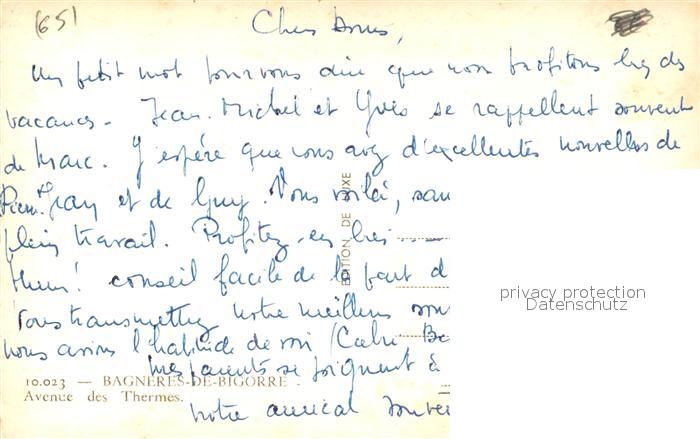 (65)
Chers Amis,
Un petit mot pour vous dire que nous profitons bien des
vacances - Jean-Michel et Yves se rappellent souvent
de Marc. J'espère que vous avez d'excellentes nouvelles de
Jean et de Guy. Vous voilà, san
plein travail. Profitez-en
conseil facile de la part d
Vous transmettrez notre meilleur sou
nous avions l'habitude de voir
mes parents se joignent à
notre amical souven
EDITION DE LUXE
10.023 — BAGNÈRES-DE-BIGORRE -
Avenue des Thermes.
privacy protection
Datenschutz